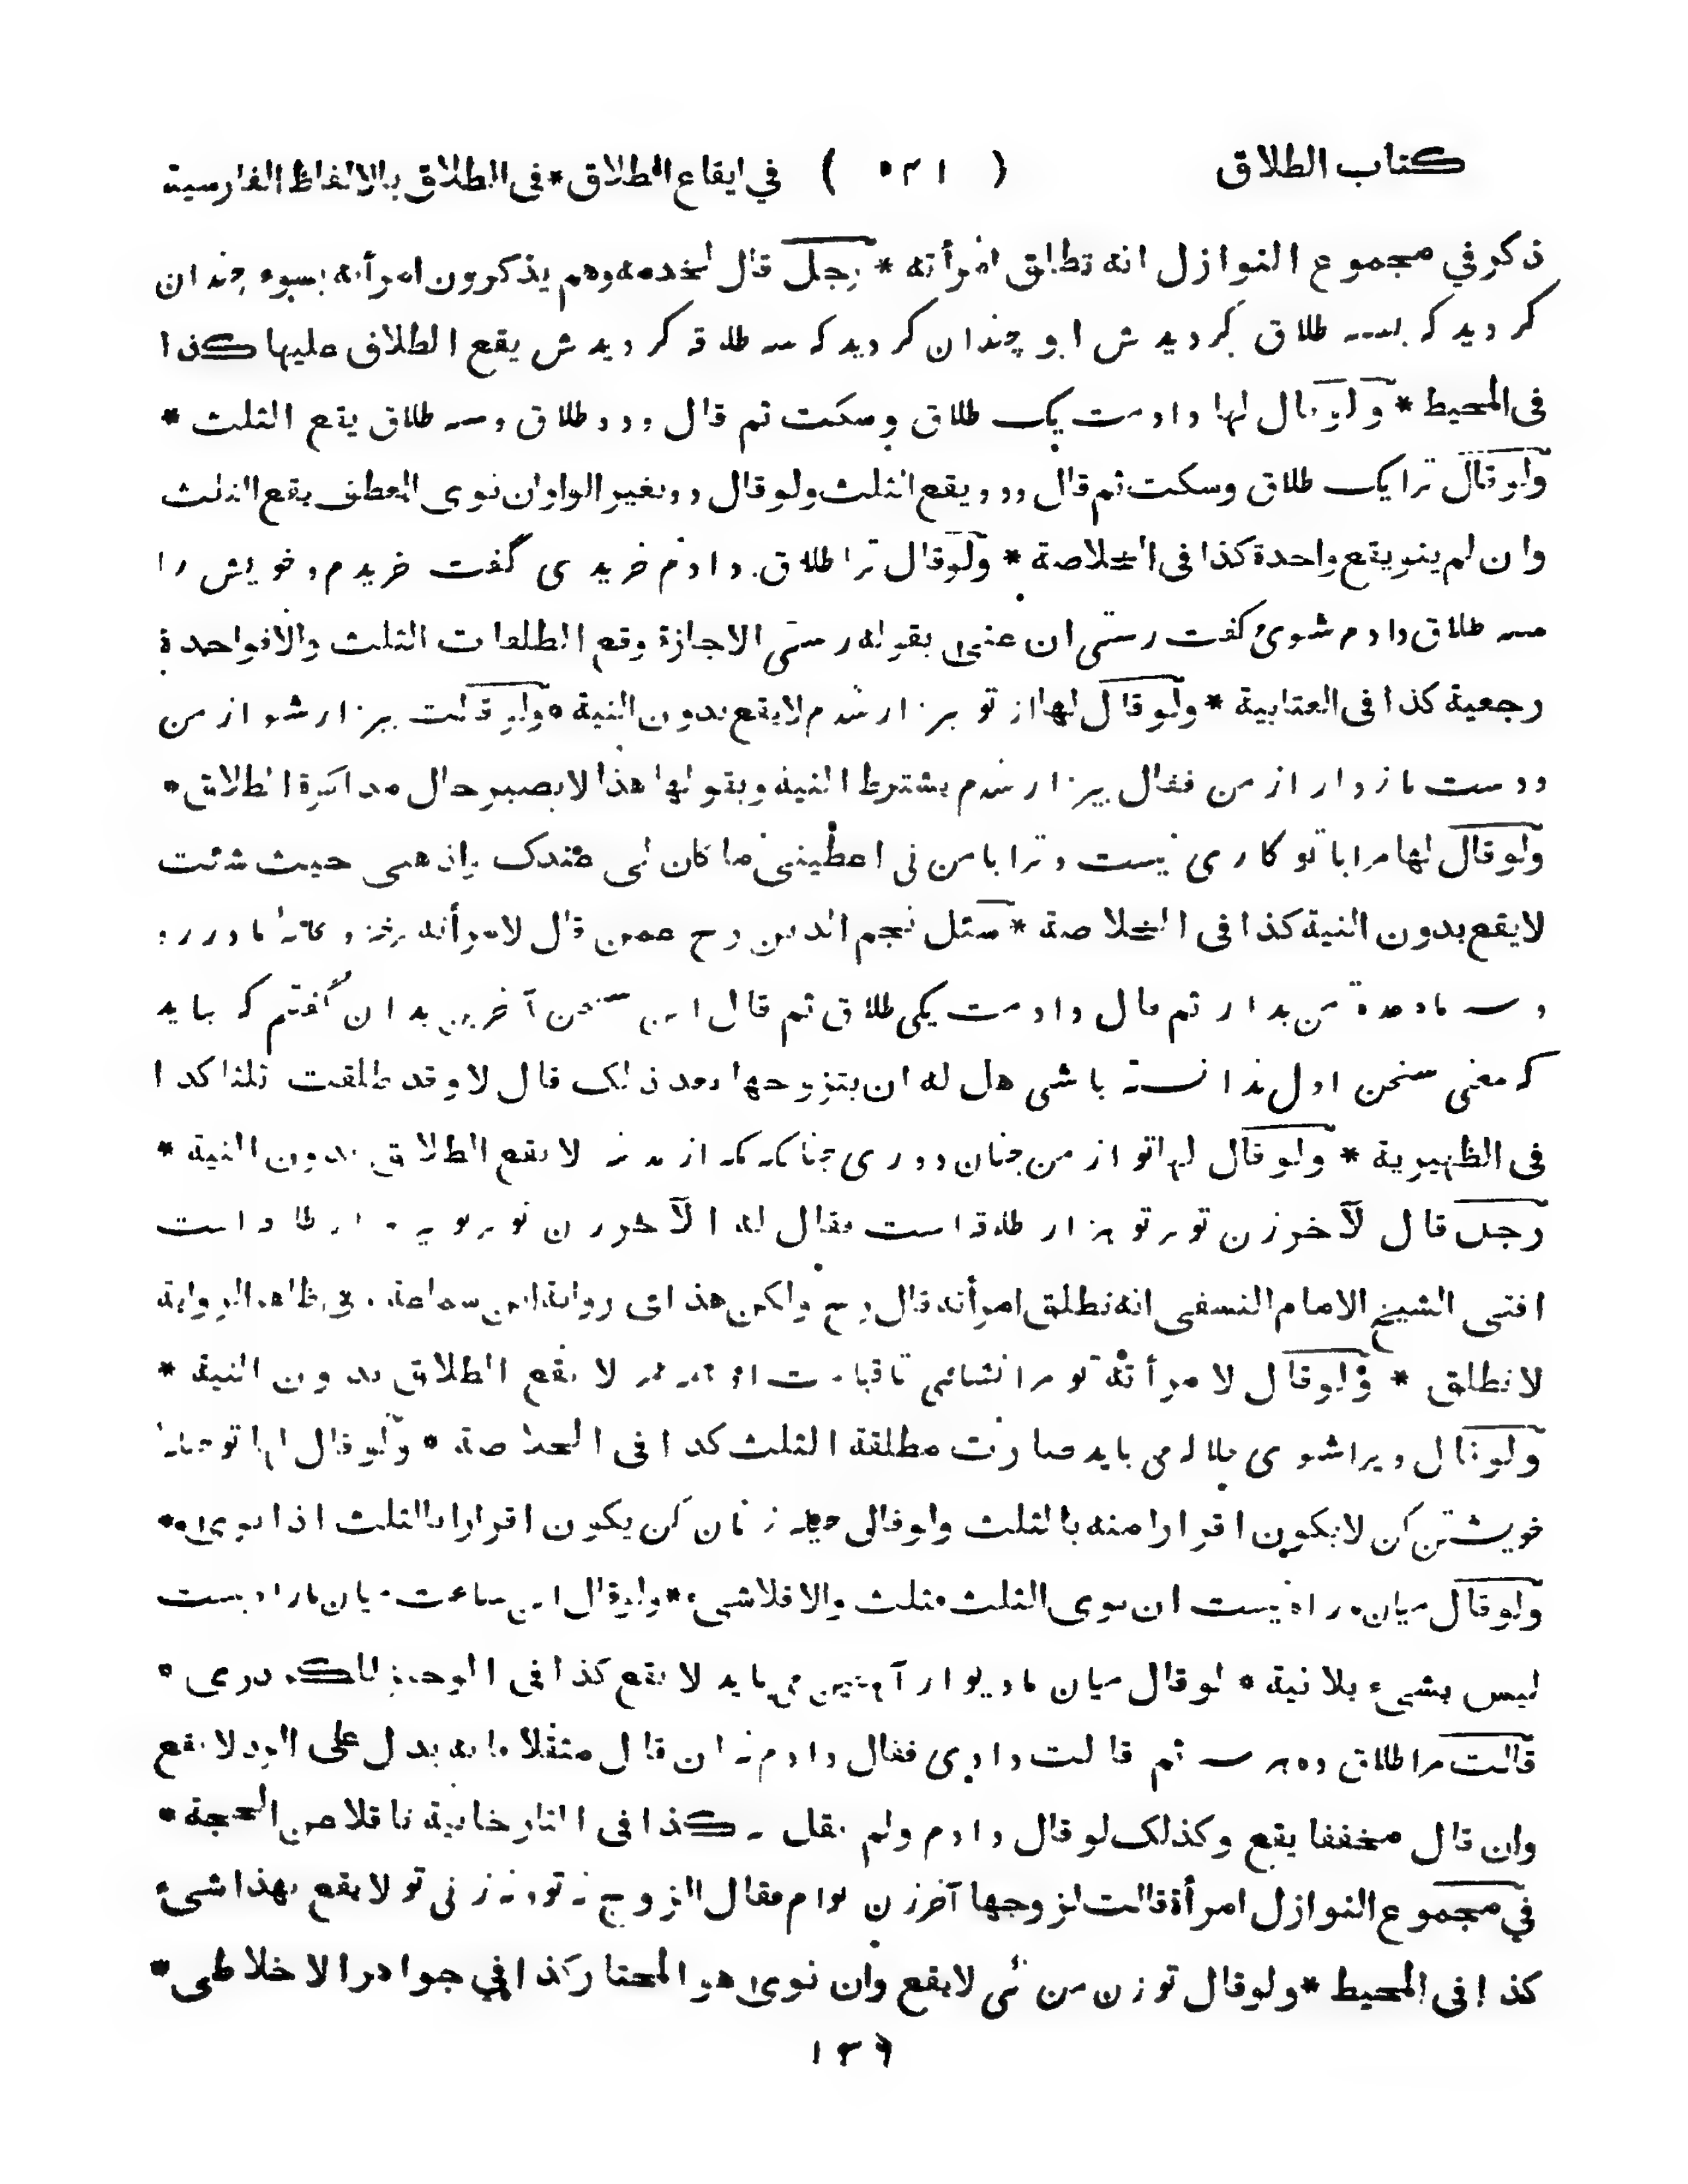 كتاب الطلاق ( ٥٢١ ) في ايقاع الطلاق * فى الطلاق بالالفاظ الفارسية
ذكر في مجموع النوازل انه تطلق امرأته * رجل قال لخدمه وهم يذكرون امرأته بسوء چندان
كرديد كه بسه طلاق كرديدش او چندان كرديد كه سه طلاقه كرديدش يقع الطلاق عليها كذا
فى المحيط * ولو قال لها دادمت يك طلاق وسكت ثم قال ودو طلاق وسه طلاق يقع الثلث *
ولو قال ترا يك طلاق وسكت ثم قال ودو يقع الثلث ولو قال دو بغير الواو ان نوى العطف يقع الثلث
وان لم ينو يقع واحدة كذا فى الخلاصة * ولو قال ترا طلاق دادم خريدى گفت خريدم و خويش را
سه طلاق دادم شوى گفت رستى ان عنى بقوله رستى الاجازة وقع الطلقات الثلث والا فواحدة
رجعية كذا فى العتابية * ولو قال لها از تو بيزار شدم لا يقع بدون النية * ولو قالت بيزار شو از من
ودست باز دار از من فقال بيزار شدم يشترط النية وبقولها هذا لا يصير حال مذاكرة الطلاق *
ولو قال لها مرا با تو كارى نيست وترا با من نى اعطينى ما كان لى عندك واذهبى حيث شئت
لا يقع بدون النية كذا فى الخلاصة * سئل نجم الدين رح عمن قال لامرأته خانه مادر رو
و سه ماه عدة من بدار ثم قال دادمت يكى طلاق ثم قال اين سخن آخرين بدان گفتم كه بايد
كه معنى سخن اول ندانسته باشى هل له ان يتزوجها بعد ذلك قال لا وقد طلقت ثلثا كذا
فى الظهيرية * ولو قال لها تو از من چنان دورى چنانكه مكه از مدينه لا يقع الطلاق بدون النية *
رجل قال لآخر زن تو بر تو هزار طلاقه است فقال له الآخر زن تو بر تو طلاقه است
افتى الشيخ الامام النسفى انه تطلق امرأته قال رح ولكن هذا فى رواية ابن سماعة و فى ظاهر الرواية
لا تطلق * ولو قال لامرأته تو مرا نشائى تا قيامت لا يقع الطلاق بدون النية *
ولو قال ويرا شوى حلاله مى بايد صارت مطلقة الثلث كذا فى الخلاصة * ولو قال لها تو حيله
خويشتن كن لا يكون اقرارا منه بالثلث ولو قال حيله زنان كن يكون اقرارا بالثلث اذا نوى *
ولو قال ميان ما راه نيست ان نوى الثلث فثلث والا فلا شىء * ولو قال اين ساعت ميان ما راه نيست
ليس بشىء بلا نية * لو قال ميان ما ديوار آهنين مى بايد لا يقع كذا فى الوجيز للكردرى *
قالت مرا طلاق ده هر سه ثم قالت دادى فقال دادم نه ان قال مثقلا بانه يدل على الرد لا يقع
وان قال مخففا يقع وكذلك لو قال دادم ولم يقل نه كذا فى التتارخانية ناقلا عن الحجة *
في مجموع النوازل امرأة قالت لزوجها آخر زن توام فقال الزوج نه تو و نه زنى تو لا يقع بهذا شىء
كذا فى المحيط * ولو قال تو زن من نى لا يقع وان نوى هو المختار كذا في جواهر الاخلاطى *
١٣٦